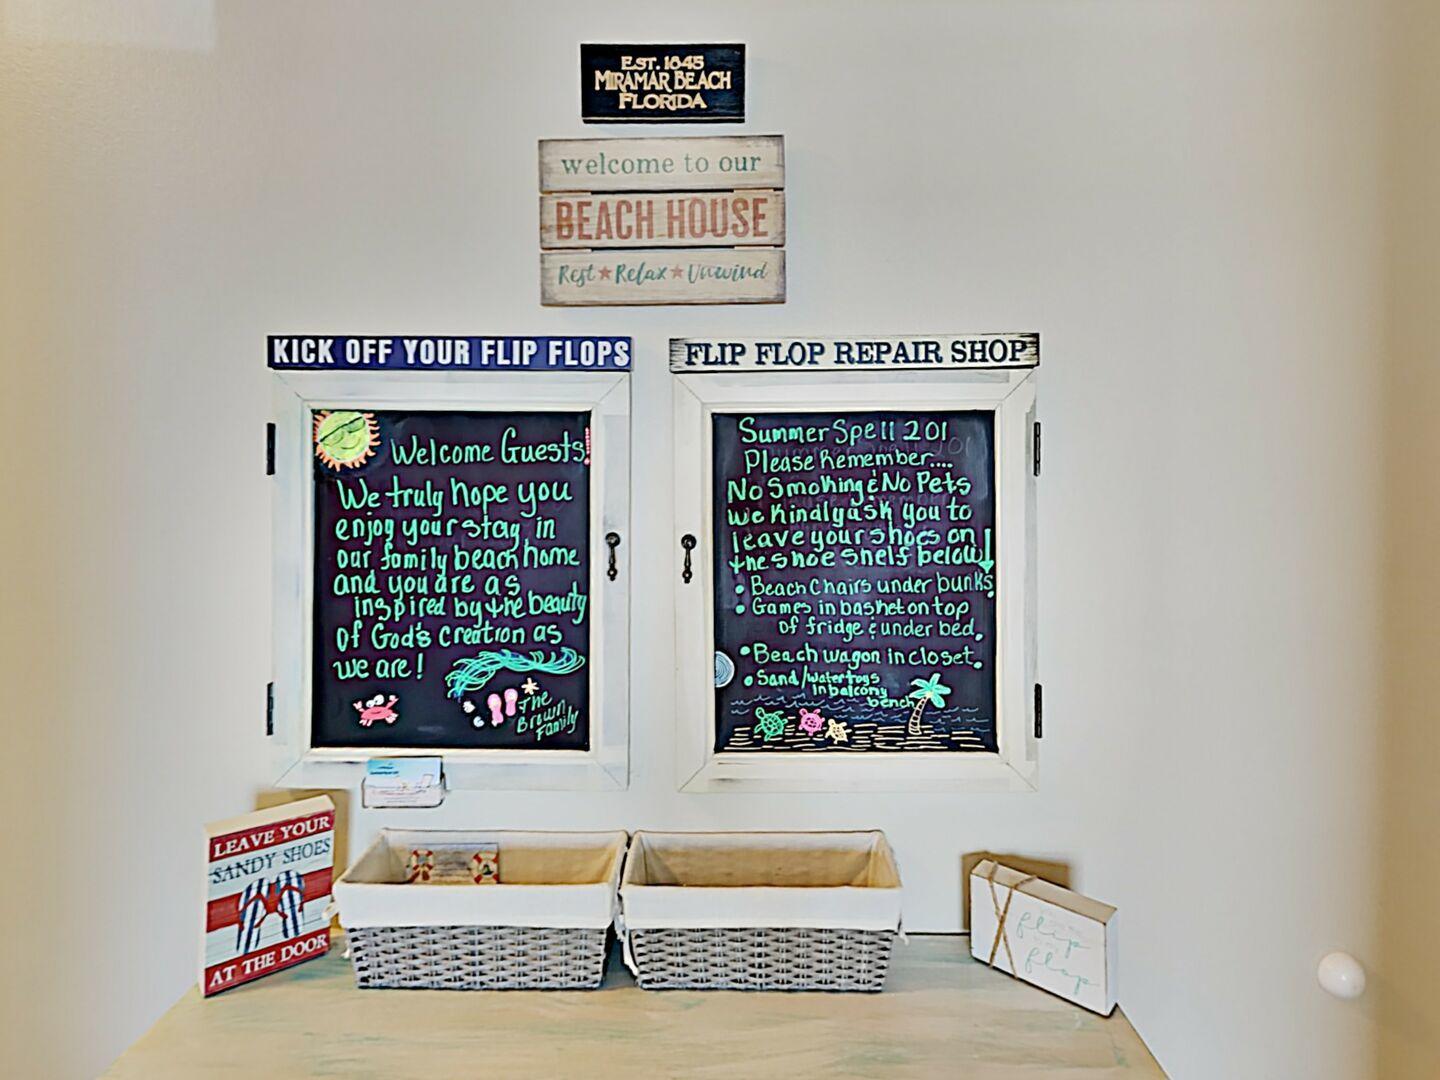 EST. 1845
MIRAMAR BEACH
FLORIDA
welcome to our
BEACH HOUSE
Rest ★ Relax ★ Unwind
KICK OFF YOUR FLIP FLOPS
Welcome Guests!
We truly hope you
enjoy your stay in
our family beach home
and you are as
inspired by the beauty
of God's creation as
we are!
The
Brown
Family
FLIP FLOP REPAIR SHOP
Summer Spell 201
Please Remember....
No Smoking & No Pets
We Kindly ask you to
leave your shoes on
the shoe shelf below
• Beach Chairs under bunks.
• Games in basket on top
of fridge & under bed.
• Beach wagon in closet.
• Sand/water toys
in balcony
bench
LEAVE YOUR
SANDY SHOES
AT THE DOOR
flip
flop